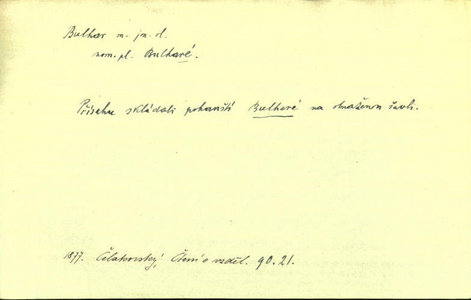 Bulhar m. jm. d.
nom. pl. Bulharé.
Přísahu skládali pohanští Bulharé na obnaženou šavli.
1877. Čelakovský, Čtení o vzděl. 90.21.